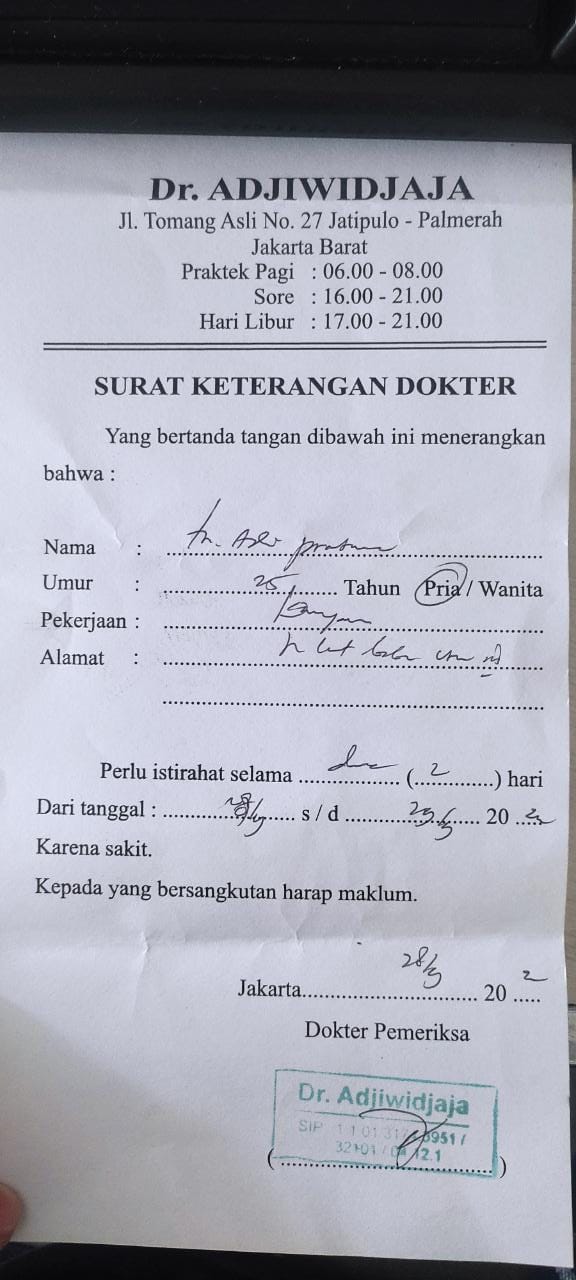 Dr. ADJIWIDJAJA
Jl. Tomang Asli No. 27 Jatipulo - Palmerah
Jakarta Barat
Praktek Pagi : 06.00 - 08.00
Sore : 16.00 - 21.00
Hari Libur : 17.00 - 21.00
SURAT KETERANGAN DOKTER
Yang bertanda tangan dibawah ini menerangkan
bahwa :
Nama : Tn.
Umur : 25 Tahun Pria / Wanita
Pekerjaan :
Alamat :
Perlu istirahat selama dua (2) hari
Dari tanggal : 28/3 s / d 29/3 20
Karena sakit.
Kepada yang bersangkutan harap maklum.
Jakarta 28/3 20
Dokter Pemeriksa
Dr. Adjiwidjaja
SIP